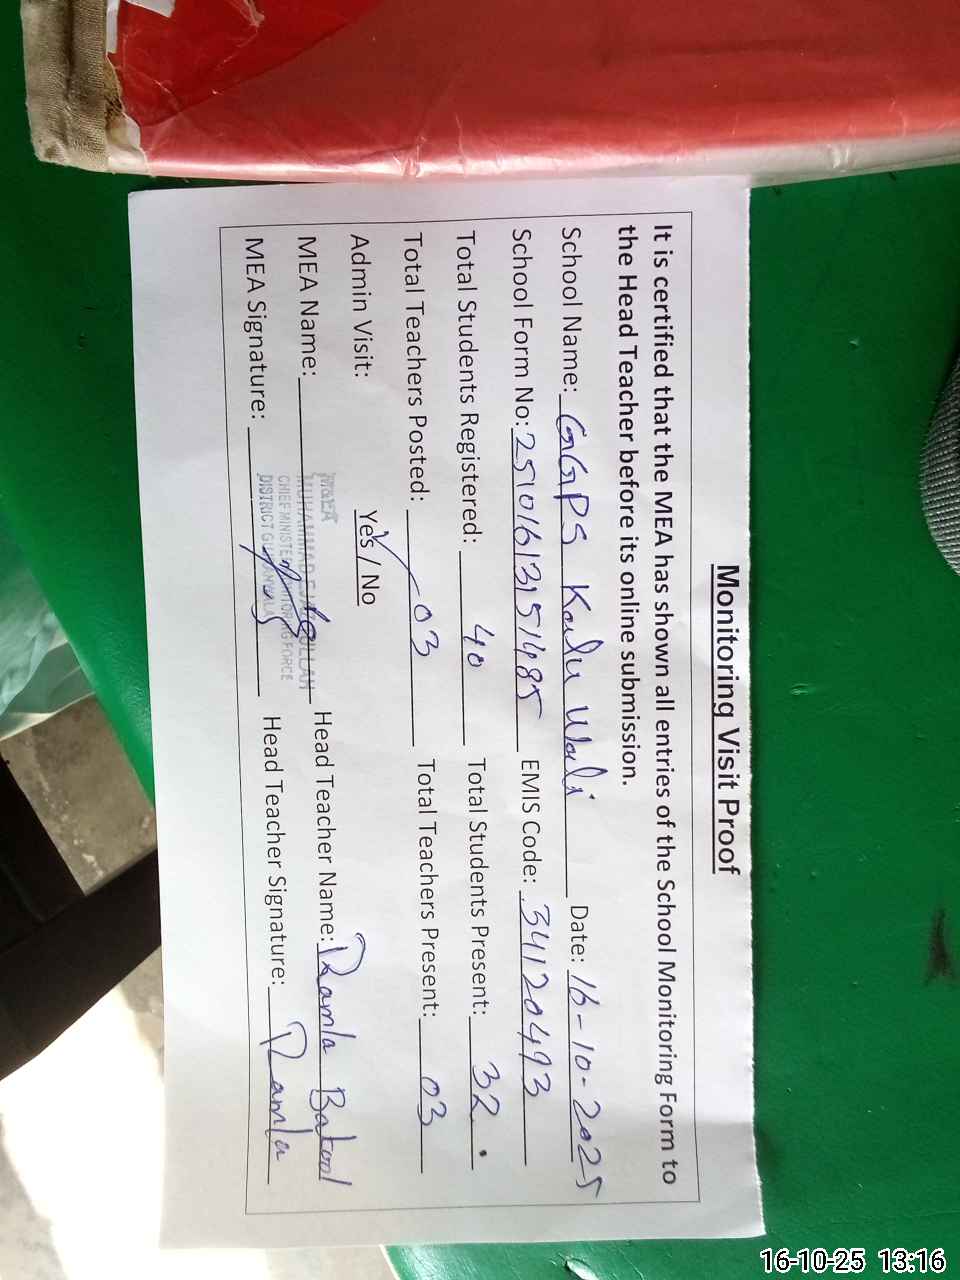 Monitoring Visit Proof
It is certified that the MEA has shown all entries of the School Monitoring Form to
the Head Teacher before its online submission.
School Name: GGPS Kalu Wali Date: 16-10-2025
School Form No: 25101613151485 EMIS Code: 34120493
Total Students Registered: 40 Total Students Present: 32
Total Teachers Posted: 03 Total Teachers Present: 03
Admin Visit: Yes / No
MEA Name: Head Teacher Name: Ramla Batool
MEA Signature: Head Teacher Signature: Ramla
M&EA
MUHAMMAD
CHIEF MINISTER MONITORING FORCE
DISTRICT GUJRANWALA
16-10-25 13:16